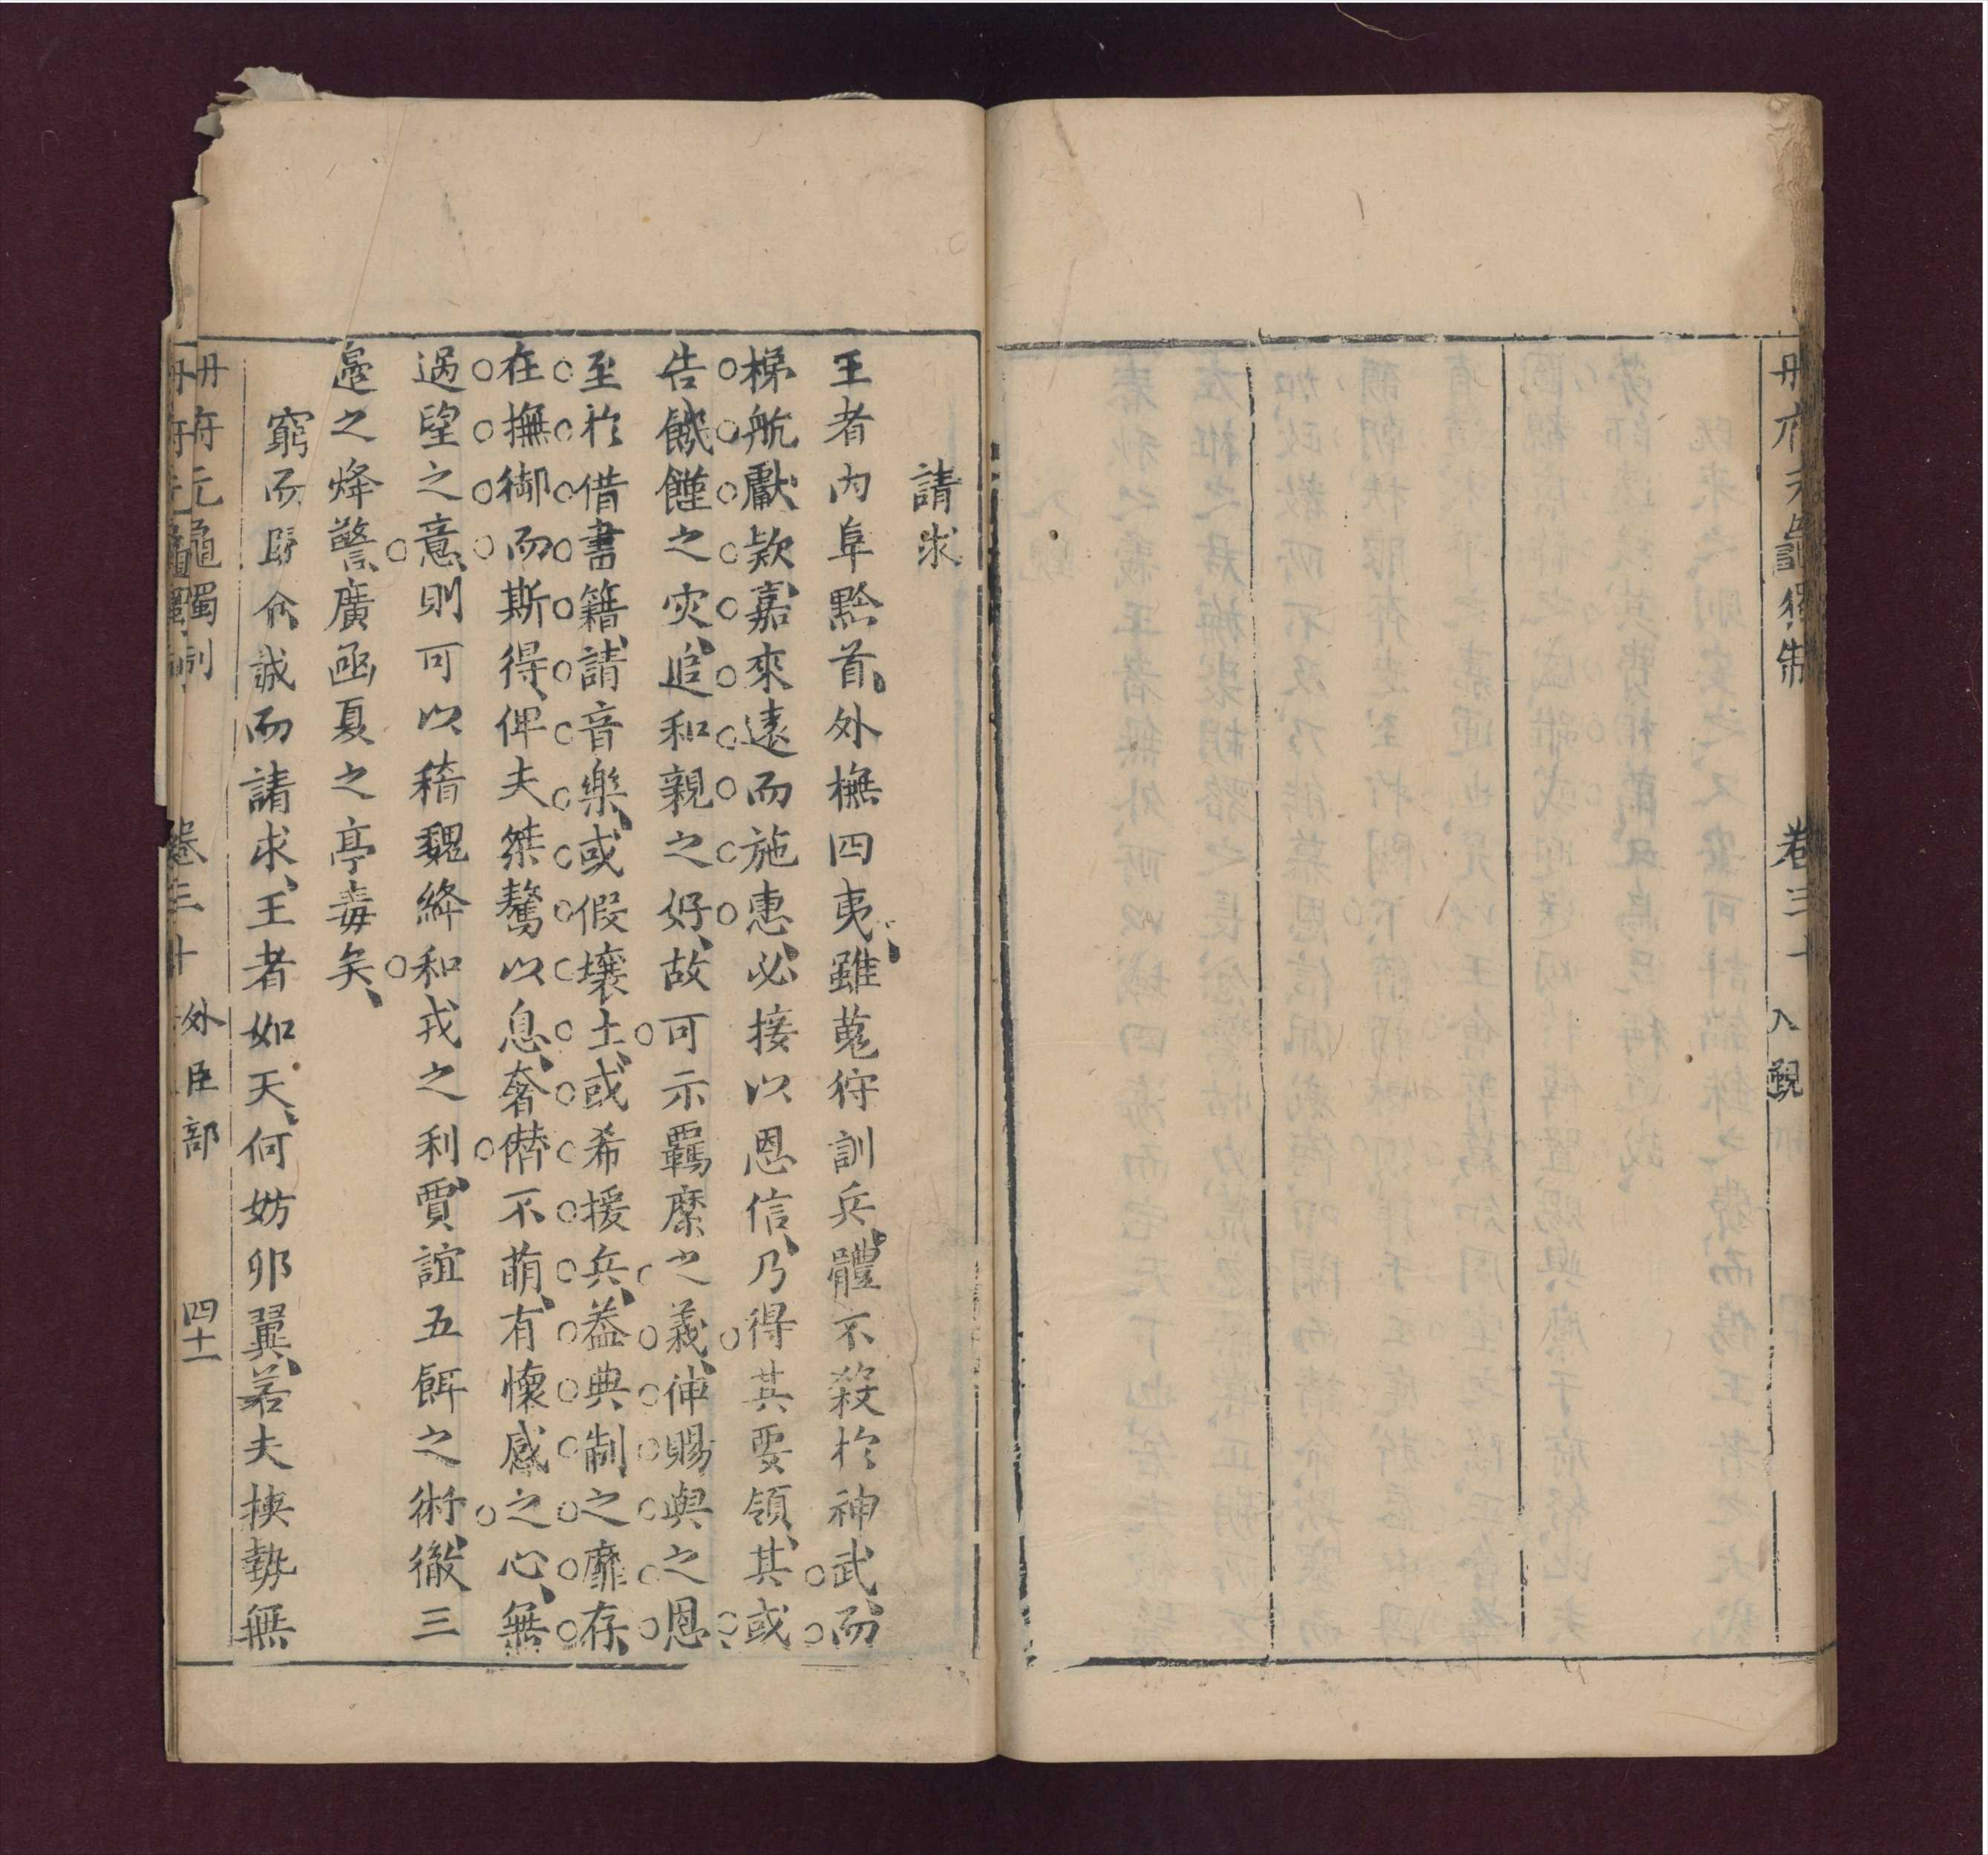 冊府元龜獨制
卷三十
入覲
請求
王者內阜黔首、外撫四夷、雖蒐狩訓兵、體不殺於神武、而
梯航獻欵、嘉來遠而施惠、必接以恩信、乃得其要領、其或
告饑饉之灾、追和親之好、故可示羈縻之義、伸賜與之恩、
至於借書籍、請音樂、或假壤土、或希援兵、益典制之靡存、
在撫御而斯得、俾夫桀驁以息、奢僭不萌、有懷感之心、無
過望之意、則可以藉魏絳和戎之利、賈誼五餌之術、徹三
邊之烽警、廣函夏之亭毒矣、
窮而歸命、誠而請求、王者如天、何妨卵翼、若夫挾勢無
冊府元龜獨制
卷三十
外臣部
四十一